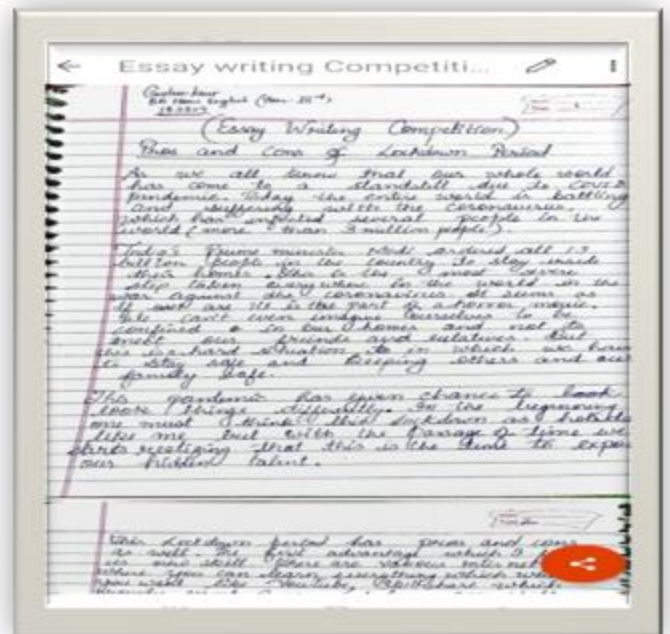 Essay writing Competiti...
BA Hons English (Sem-
(Essay Writing Competition)
Pros and Cons of Lockdown Period
As we all know that our whole world
has come to a standstill due to COVID
Pandemic. Today the entire world is battling
and suffering with the coronavirus.
which has infected several people in the
world (more than 3 million people).
India's Prime minister Modi ordered all 1.3
billion people in the country to stay inside
their homes. This is the most severe
step taken everywhere in the world in the
war against the coronavirus. It seems as
if we are the part of a horror movie.
We can't even imagine ourselves to be
confined in our homes and not to
meet our friends and relatives. But
this is a hard situation in which we have
to stay safe and keeping others and our
family safe.
This pandemic has given chance to
look things differently. In the beginning
one must think this lockdown as
like me but with the passage of time we
starts realizing that this is the time to
our hidden talent.
This Lockdown period has pros and cons
as well. The first advantage which I
is new skill. There are various
where you can learn everything which
you want like YouTube, Skillshare which